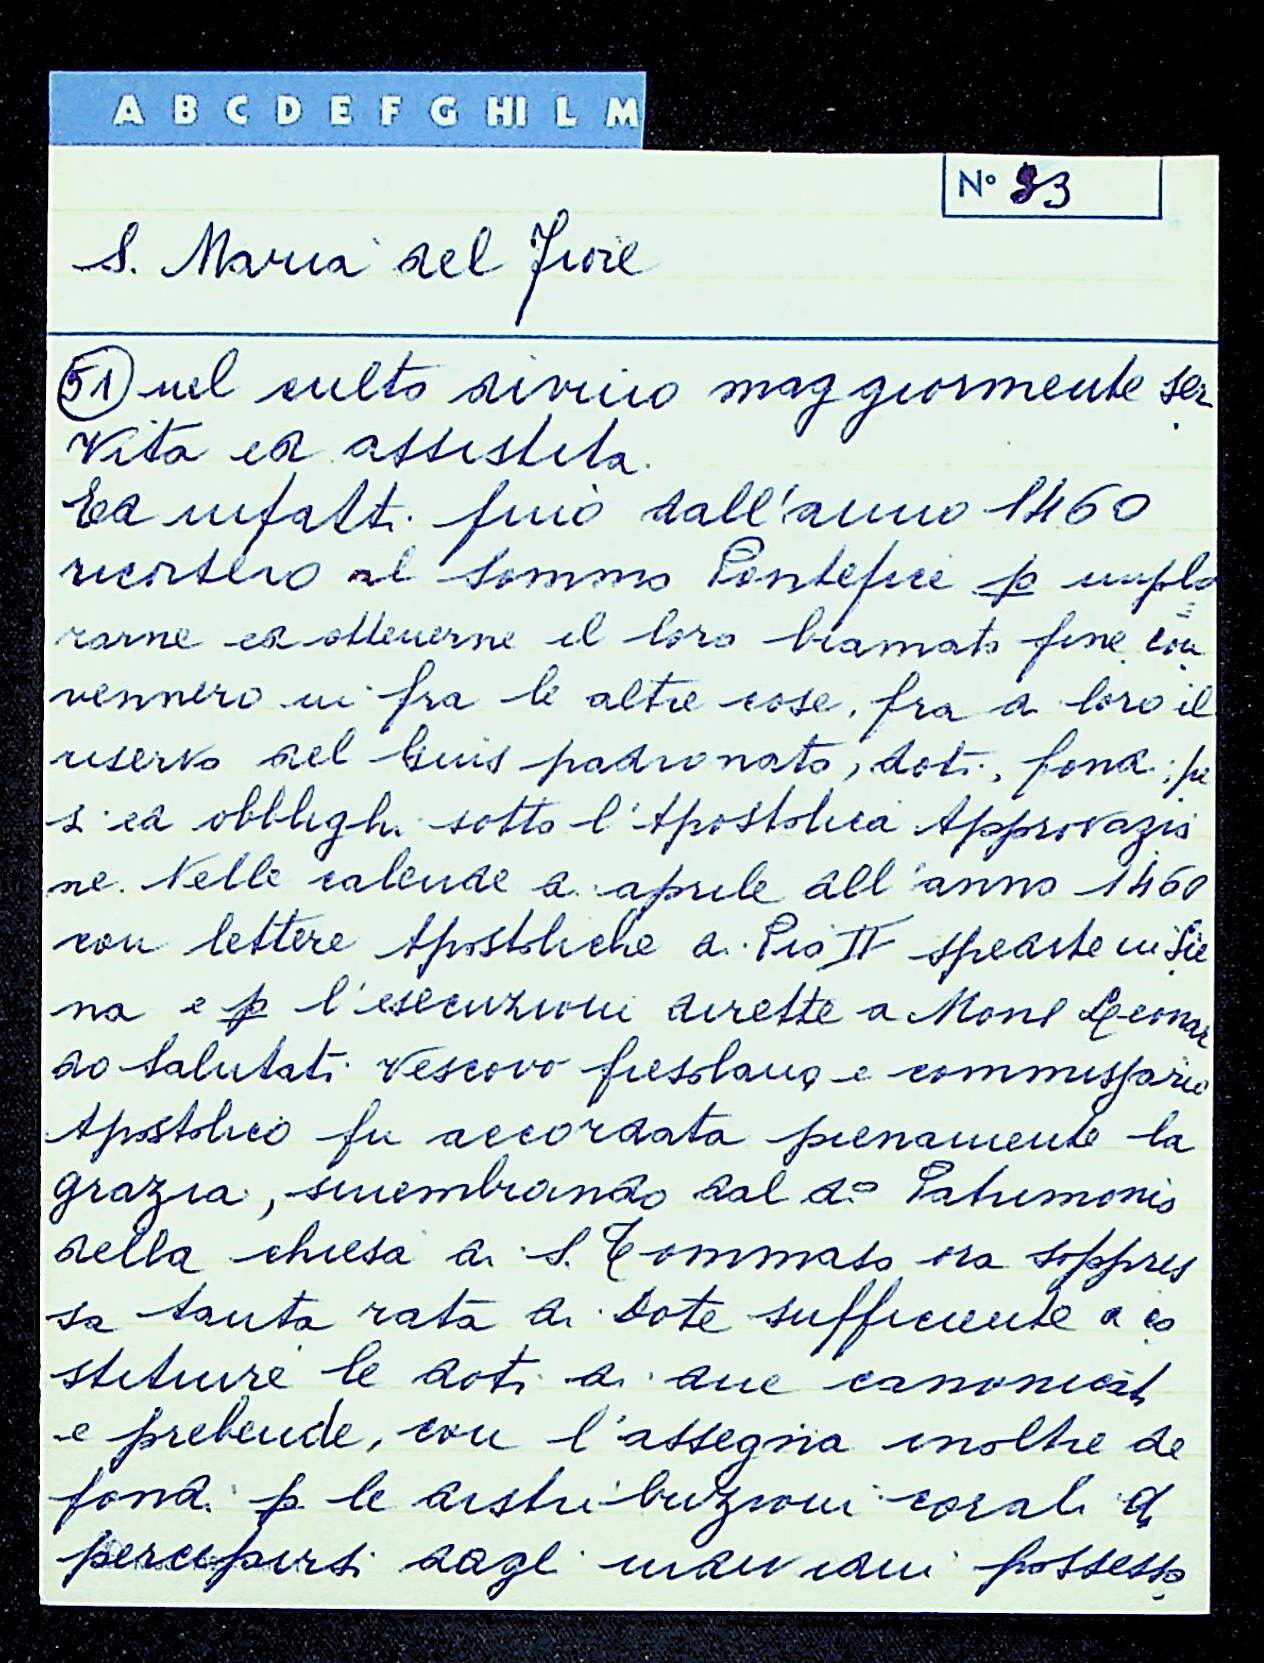 A B C D E F G HI L M
N° 93
S. Maria del Fiore
(51) nel culto divino maggiormente ser
vita ed assistita.
Ed infatti fino dall'anno 1460
ricorsero al Sommo Pontefice p implo
rarne ed ottenerne il loro bramato fine con
vennero in fra le altre cose, fra di loro il
riservo del Gius padronato, doti, fondi, pe
si ed obblighi sotto l'Apostolica Approvazio
ne. Nelle calende di aprile dell'anno 1460
con lettere Apostoliche di Pio II spedite in Sie
na e p l'esecuzioni dirette a Mons Leonar
do Salutati Vescovo fiesolano e commissario
Apostolico fu accordata pienamente la
grazia, smembrando dal do Patrimonio
della chiesa di S. Tommaso ora soppres
sa tanta rata di Dote sufficiente a co
stituire le doti di due canonicati
e prebende, con l'assegna inoltre de
fondi p le distribuzioni corali da
percepirsi dagl individui possesso